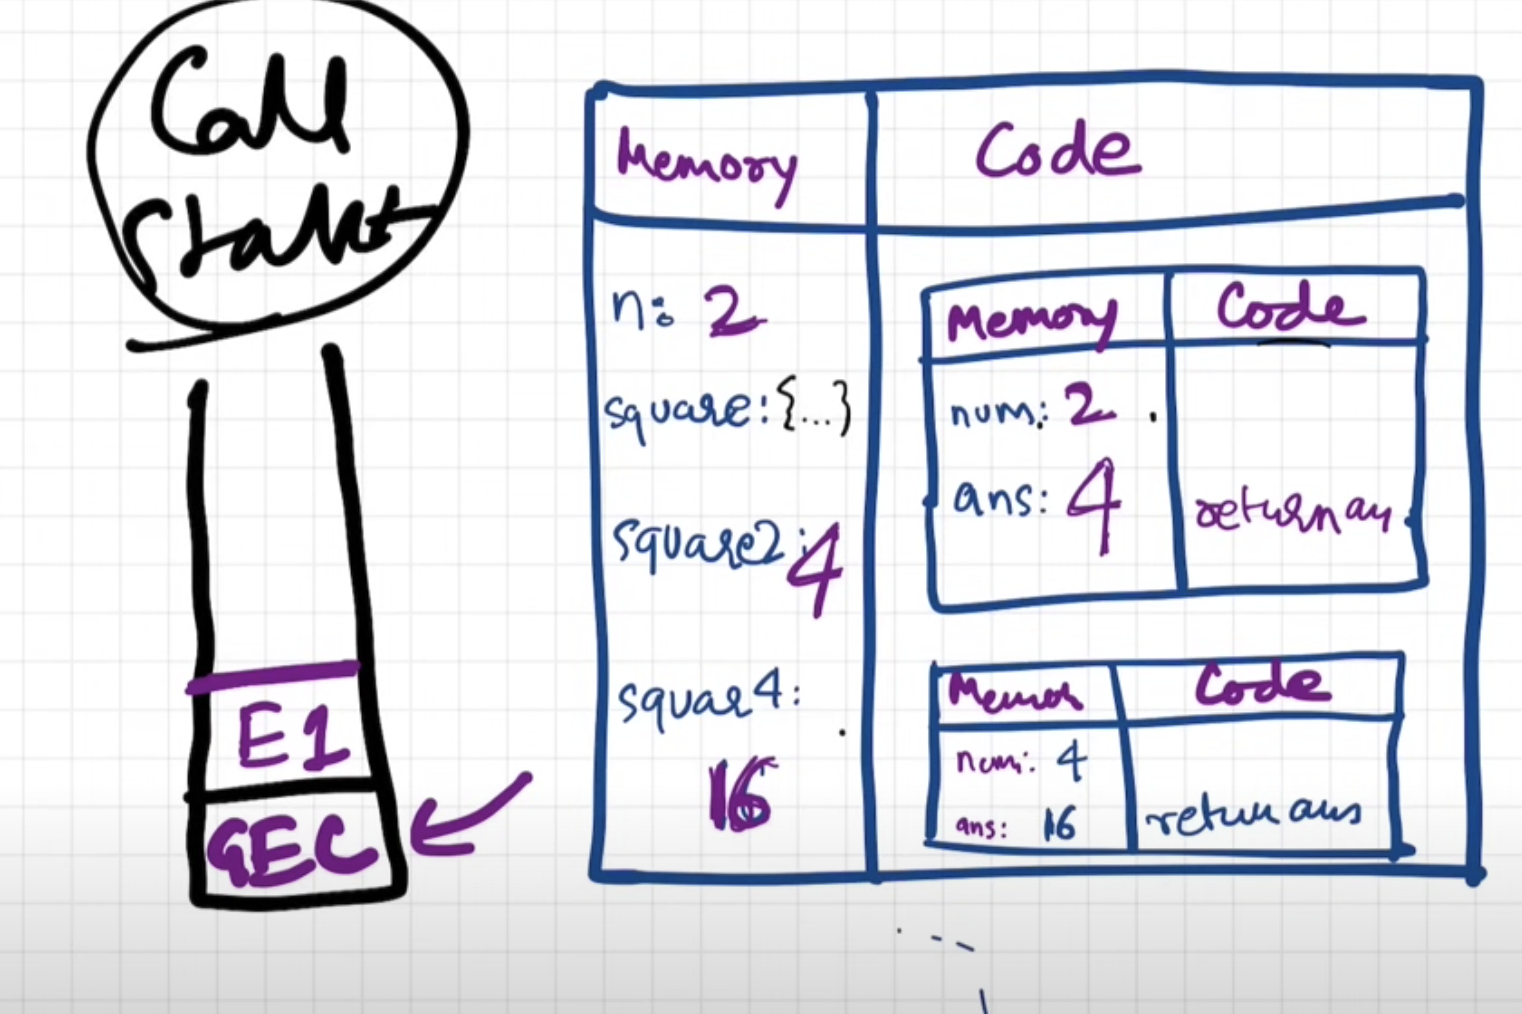 Call
Stack
E1
GEC
Memory
Code
n: 2
square: {...}
square2: 4
squar4:
16
Memory
Code
num: 2
ans: 4
return an
Code
num: 4
ans: 16
return ans